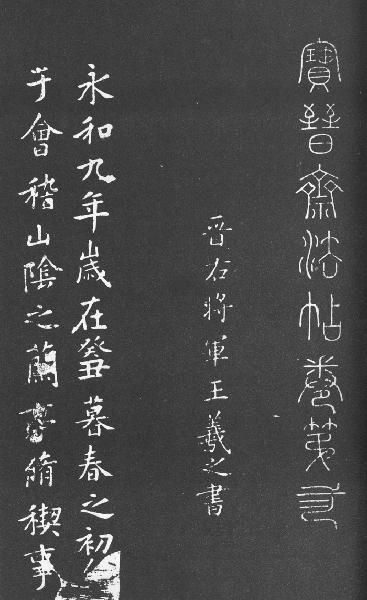 寶晉齋法帖卷第
晉右將軍王羲之書
永和九年歲在癸丑暮春之初
于會稽山陰之蘭亭脩禊事